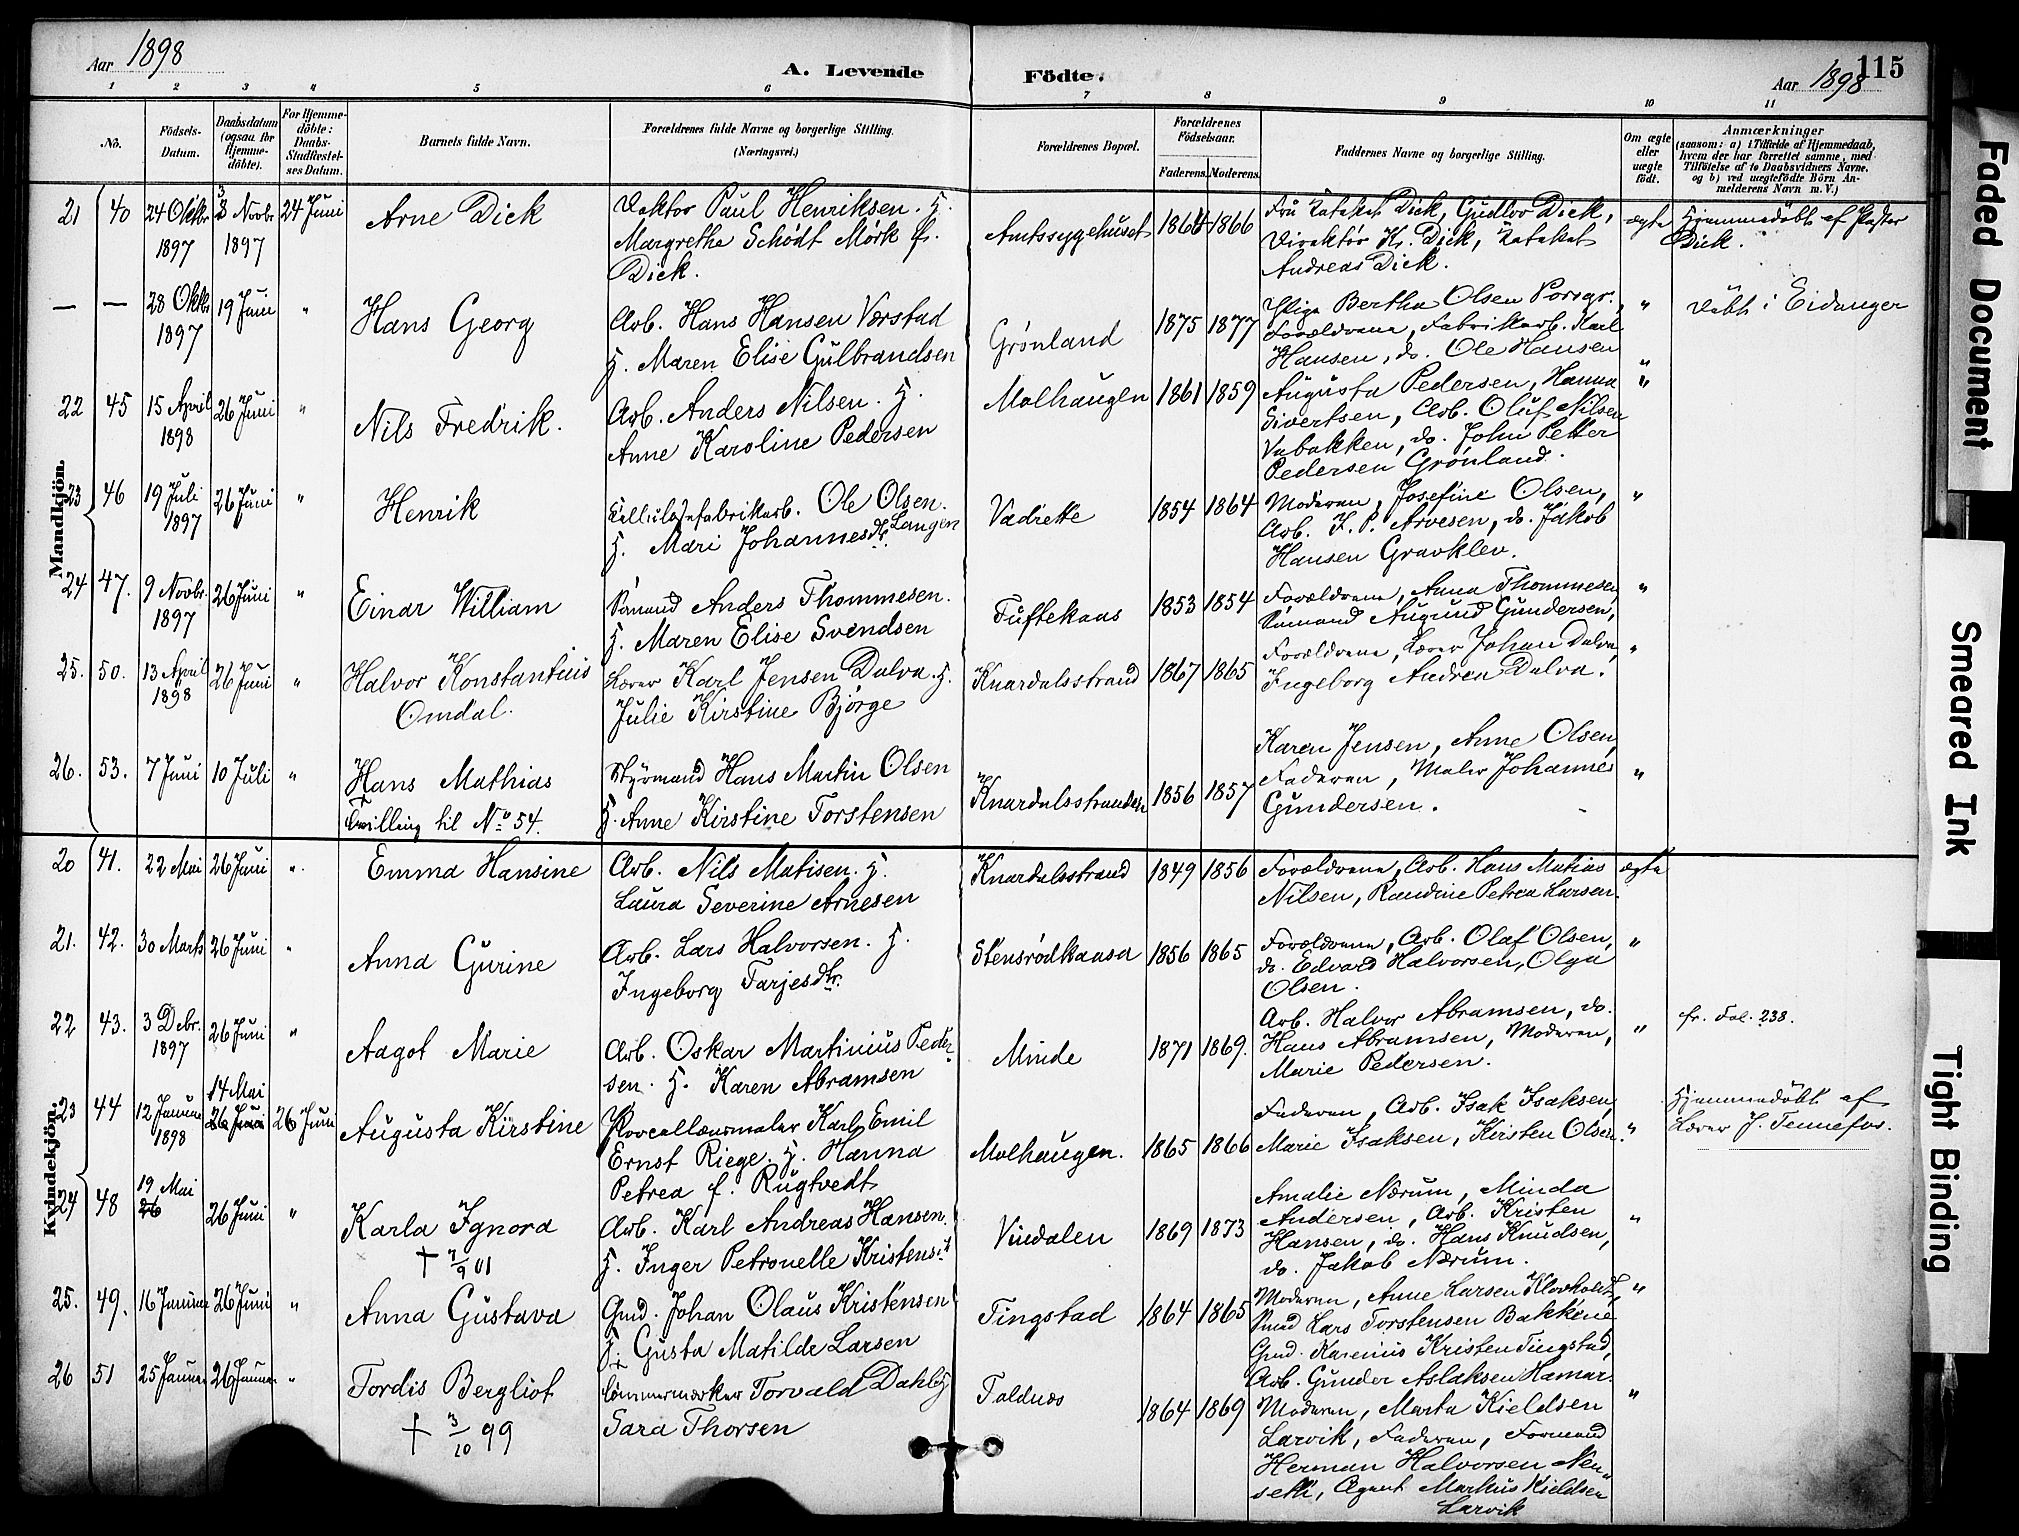 Aar 1898
A. Levende
Födte.
Aar 1898
115
1 2 3 4 5 6 7 8 9 10 11
No.
Födsels-Datum.
Daabsdatum (ogsaa for Hjemme-döbte).
For Hjemme-döbte: Daabs-Stadfæstel-ses Datum.
Barnets fulde Navn.
Forældrenes fulde Navne og borgerlige Stilling.
(Næringsvei.)
Forældrenes Bopæl.
Forældrenes Födselsaar.
Faderens. Moderens.
Faddernes Navne og borgerlige Stilling.
Om ægte eller uægte födt.
Anmærkninger
(saasom: a) i Tilfælde af Hjemmedaab, hvem der har forrettet samme, med Tilföielse af to Daabsvidners Navne, og b) ved uægtefödte Börn An-melderens Navn m. V.)
Mandkjön.
21 40 24 Oktbr 1897 3 Novbr 1897 24 Juni Arne Dick
Doktor Paul Henriksen. H.
Margrethe Schödt Mörk f.
Dick.
Amtssygehuset 1864 1866
Fru Kateket Dick, Gudlov Dick,
Direktör Kr. Dick, Kateket
Andreas Dick.
ægte Hjemmedöbt af Pastor
Dick.
— — 28 Oktbr 1897 19 Juni " Hans Georg
Arb. Hans Hansen Værstad
H. Maren Elise Gulbrandsen
Grönland 1875 1877
Pige Bertha Olsen Porsgr.,
Forældrene, Fabrikarb. Karl
Hansen, do. Ole Hansen
" Döbt i Eidanger
22 45 15 April 1898 26 Juni " Nils Fredrik.
Arb. Anders Nilsen. H.
Anne Karoline Pedersen
Molhaugen 1861 1859
Augusta Pedersen, Hanna
Sivertsen, Arb. Oluf Nilsen
Vabakken, do. John Petter
Pedersen Grönland.
"
23 46 19 Juli 1897 26 Juni " Henrik
Cellulosefabrikarb. Ole Olsen.
H. Mari Johannesdtr. Langen
Vadrette 1854 1864
Moderen, Josefine Olsen,
Arb. K. P. Arvesen, do. Jakob
Hansen Gravklev.
"
24 47. 9 Novbr. 1897 26 Juni " Einar William
Sömand Anders Thommesen.
H. Maren Elise Svendsen
Tuftekaas 1853 1854
Forældrene, Anna Thommesen
Sömand Augund Gundersen,
"
25. 50. 13 April 1898 26 Juni " Halvor Konstantius
Omdal.
Lærer Karl Jensen Dalva. H.
Julie Kirstine Bjørge
Knardalsstrand 1867 1865
Forældrene, Lærer Johan Dalva,
Ingeborg Andrea Dalva.
"
26. 53. 7 Juni 10 Juli " Hans Mathias
Tvilling til No 54.
Styrmand Hans Martin Olsen
H. Anne Kirstine Torstensen
Knardalsstranden 1856 1857
Karen Jensen, Anne Olsen,
Faderen, Maler Johannes
Gundersen.
"
Kvindekjön.
20 41. 22 Mai 26 Juni " Emma Hansine
Arb. Nils Matisen. H.
Laura Severine Arnesen
Knardalsstrand 1849 1856
Forældrene, Arb. Hans Matias
Nilsen, Randine Petrea Larsen.
ægte
21. 42. 30 Marts 26 Juni " Anna Gurine
Arb. Lars Halvorsen. H.
Ingeborg Tarjesdtr.
Stensrödkaasa 1856 1865
Forældrene, Arb. Olaf Olsen,
do. Edvard Halvorsen, Olga
Olsen.
"
22 43. 3 Debr. 1897 26 Juni " Aagot Marie
Arb. Oskar Martinius Peder-
sen. H. Karen Abramsen
Minde 1871 1869.
Arb. Halvor Abramsen, do.
Hans Abramsen, Moderen,
Marie Pedersen.
" fr. Fol. 238.
23 44 12 Januar 1898 14 Mai 26 Juni 26 Juni Augusta Kirstine
Porcellænsmaler Karl Emil
Ernst Riege. H. Hanna
Petrea f. Rugtvedt
Molhaugen. 1865 1866
Faderen, Arb. Isak Isaksen,
Marie Isaksen, Kirsten Olsen.
" Hjemmedöbt af
Lærer J. Tennefos.
24 48 19 Mai 26 26 Juni " Karla Ignora
† 7/9 01
Arb. Karl Andreas Hansen.
H. Inger Petronelle Kristensdt
Vindalen 1869 1873
Amalie Nærum, Minda
Andersen, Arb. Kristen
Hansen, do. Hans Knudsen,
do. Jakob Nærum.
"
25. 49. 16 Januar 26 Juni " Anna Gustava
Gmd. Johan Olaus Kristensen
H. Gusta Matilde Larsen
Tingstad 1864 1865
Moderen, Anne Larsen Klovholdt,
Lars Torstensen Bakkene
Gmd. Karenius Kristen Tingstad,
Arb. Gunder Aslaksen Hamar.
"
26 51 25 Januar 26 Januar " Tordis Bergliot
† 3/10 99
Tömmermærker Torvald Dahl. H.
Sara Thorsen
Foldnæs 1864 1869
Moderen, Marta Kieldsen
Larvik, Faderen, Formand
Herman Halvorsen Nen-
seth, Agent Markus Kieldsen
Larvik
"
Faded Document
Smeared Ink
Tight Binding